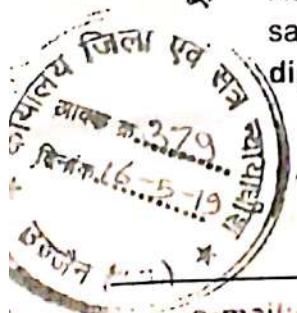 sa
di
कार्यालय जिला एवं सत्र न्यायाधीश
आवक क्र. 379
दिनांक 16-5-19
उज्जैन
e-mail: